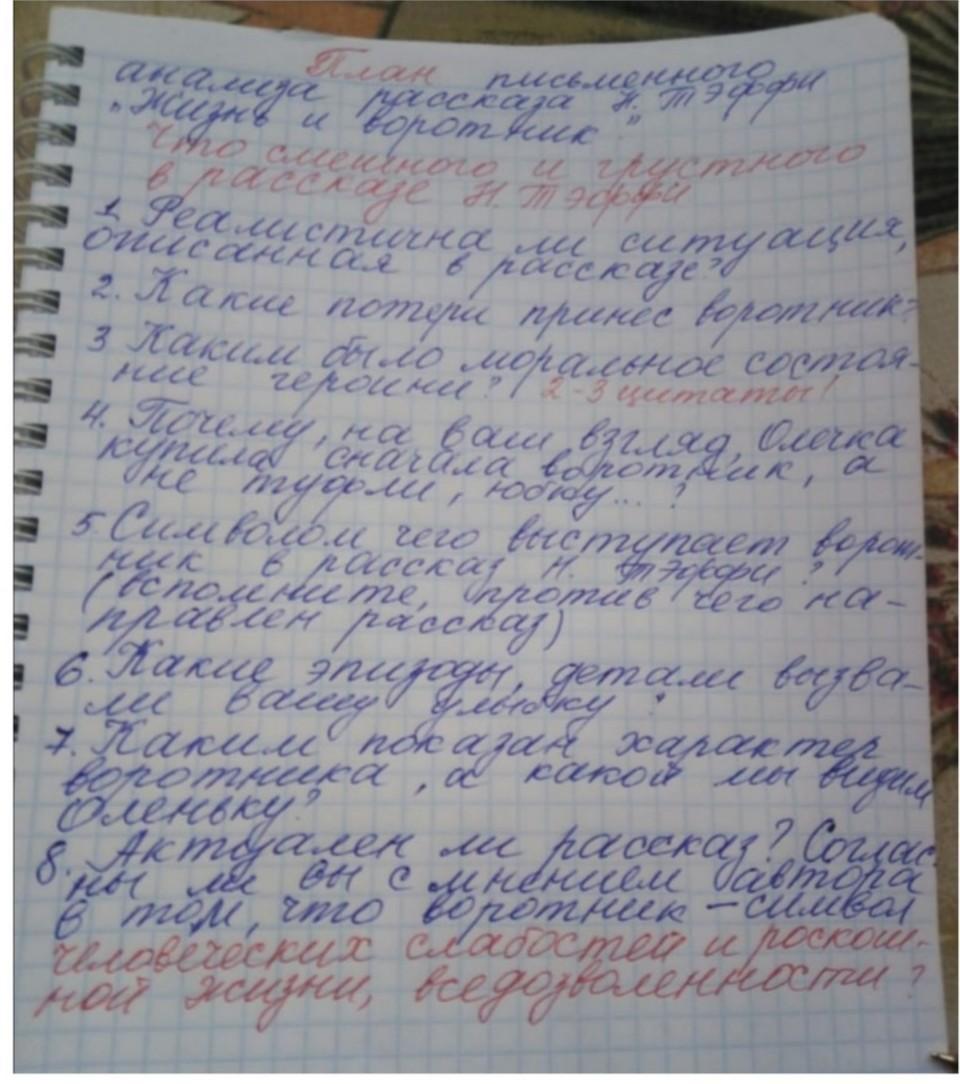 План письменного
анализа рассказа Н. Тэффи
"Жизнь и воротник"
Что смешного и грустного
в рассказе Н. Тэффи
1. Реалистична ли ситуация,
описанная в рассказе?
2. Какие потери принес воротник?
3 Каким было моральное состоя-
ние героини? 2-3 цитаты!
4. Почему, на ваш взгляд, Олечка
купила сначала воротник, а
не туфли, юбку...?
5. Символом чего выступает ворот-
ник в рассказ Н. Тэффи?
(вспомните, против чего на-
правлен рассказ)
6. Какие эпизоды, детали вызва-
ли вашу улыбку?
7. Каким показан характер
воротника, а какой мы видим
Оленьку?
8. Актуален ли рассказ? Соглас-
ны ли вы с мнением автора
в том, что воротник - символ
человеческих слабостей и роскош-
ной жизни, вседозволенности?